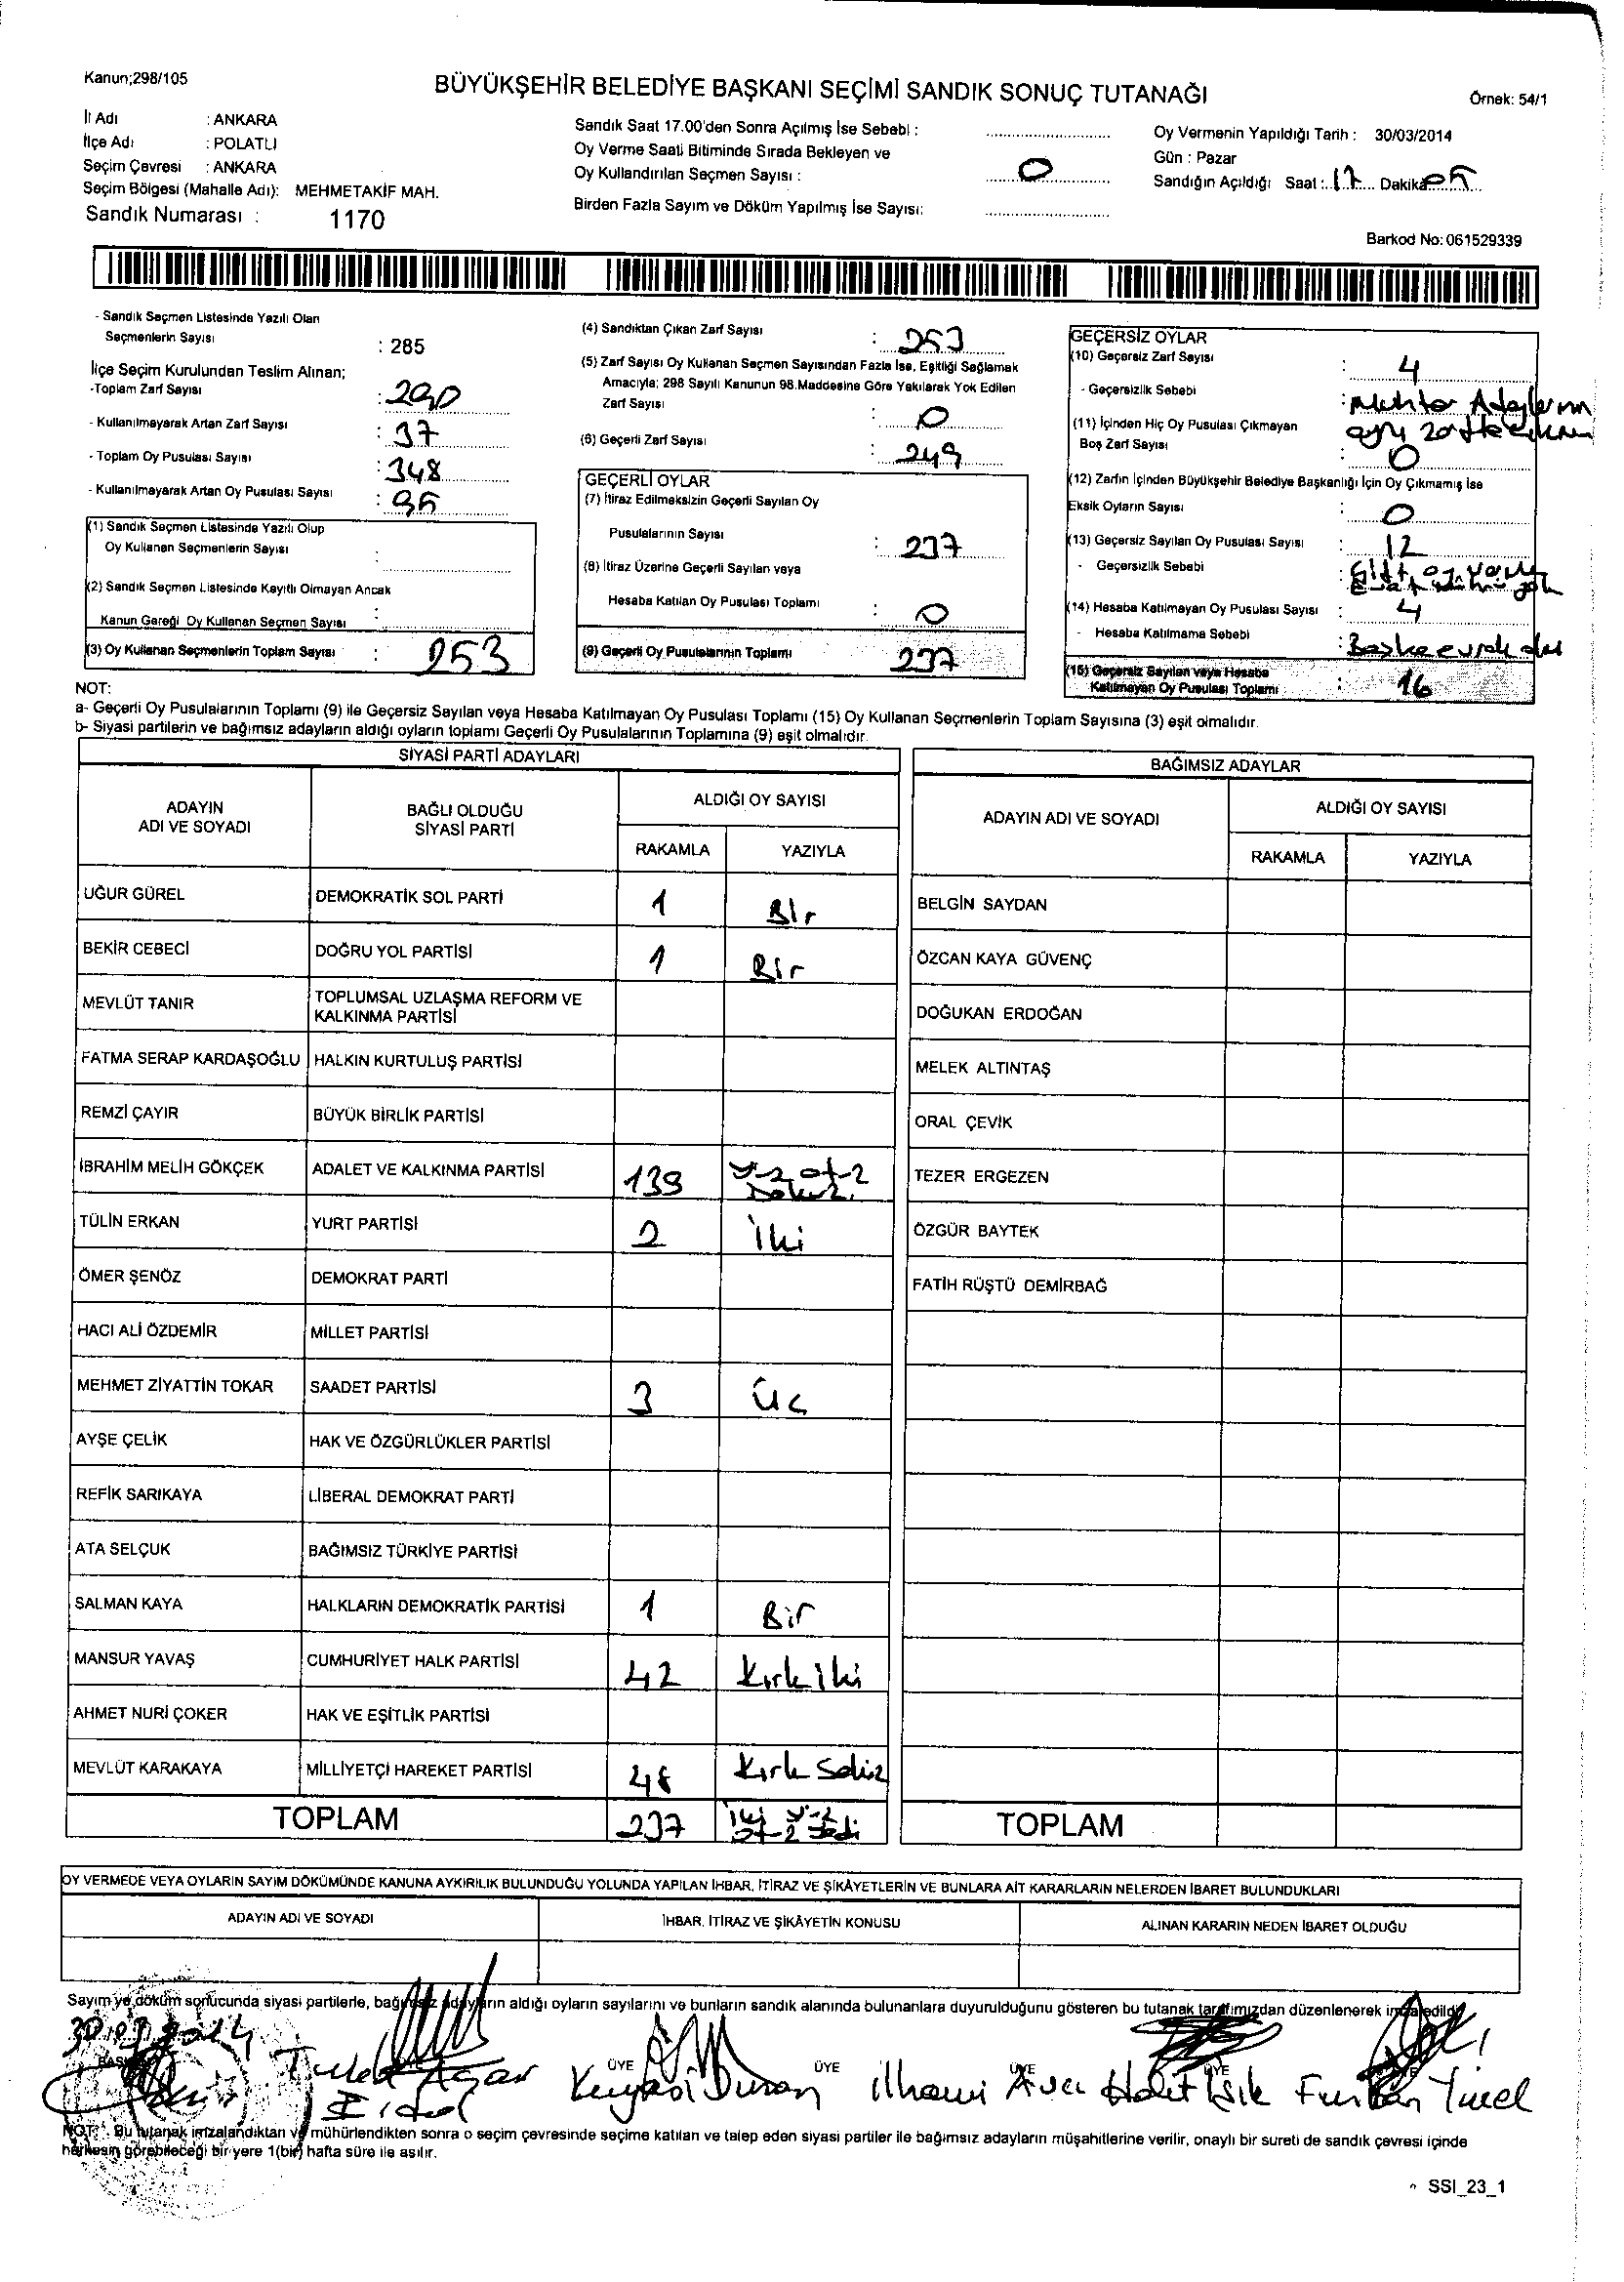 Kanun;298/105
BÜYÜKŞEHİR BELEDİYE BAŞKANI SEÇİMİ SANDIK SONUÇ TUTANAĞI
Örnek: 54/1
İl Adı : ANKARA
İlçe Adı : POLATLI
Seçim Çevresi : ANKARA
Seçim Bölgesi (Mahalle Adı): MEHMETAKİF MAH.
Sandık Numarası : 1170
Sandık Saat 17.00'den Sonra Açılmış İse Sebebi :
Oy Verme Saati Bitiminde Sırada Bekleyen ve
Oy Kullandırılan Seçmen Sayısı : 0
Birden Fazla Sayım ve Döküm Yapılmış İse Sayısı:
Oy Vermenin Yapıldığı Tarih : 30/03/2014
Gün : Pazar
Sandığın Açıldığı Saat : 17 Dakika 05
Barkod No: 061529339
- Sandık Seçmen Listesinde Yazılı Olan
Seçmenlerin Sayısı : 285
İlçe Seçim Kurulundan Teslim Alınan;
-Toplam Zarf Sayısı : 290
- Kullanılmayarak Artan Zarf Sayısı : 37
- Toplam Oy Pusulası Sayısı : 348
- Kullanılmayarak Artan Oy Pusulası Sayısı : 95
(1) Sandık Seçmen Listesinde Yazılı Olup
Oy Kullanan Seçmenlerin Sayısı :
(2) Sandık Seçmen Listesinde Kayıtlı Olmayan Ancak
Kanun Gereği Oy Kullanan Seçmen Sayısı :
(3) Oy Kullanan Seçmenlerin Toplam Sayısı : 253
(4) Sandıktan Çıkan Zarf Sayısı : 253
(5) Zarf Sayısı Oy Kullanan Seçmen Sayısından Fazla İse, Eşitliği Sağlamak
Amacıyla; 298 Sayılı Kanunun 98.Maddesine Göre Yakılarak Yok Edilen
Zarf Sayısı : 0
(6) Geçerli Zarf Sayısı : 249
GEÇERLİ OYLAR
(7) İtiraz Edilmeksizin Geçerli Sayılan Oy
Pusulalarının Sayısı : 237
(8) İtiraz Üzerine Geçerli Sayılan veya
Hesaba Katılan Oy Pusulası Toplamı : 0
(9) Geçerli Oy Pusulalarının Toplamı 237
GEÇERSİZ OYLAR
(10) Geçersiz Zarf Sayısı : 4
- Geçersizlik Sebebi : Muhtar Adayların
ayrı zarfta
(11) İçinden Hiç Oy Pusulası Çıkmayan
Boş Zarf Sayısı : 0
(12) Zarfın İçinden Büyükşehir Belediye Başkanlığı İçin Oy Çıkmamış İse
Eksik Oyların Sayısı : 0
(13) Geçersiz Sayılan Oy Pusulası Sayısı : 12
- Geçersizlik Sebebi : Çift oy
(14) Hesaba Katılmayan Oy Pusulası Sayısı : 4
- Hesaba Katılmama Sebebi : Başka evrak
(15) Geçersiz Sayılan veya Hesaba
Katılmayan Oy Pusulası Toplamı : 16
NOT:
a- Geçerli Oy Pusulalarının Toplamı (9) ile Geçersiz Sayılan veya Hesaba Katılmayan Oy Pusulası Toplamı (15) Oy Kullanan Seçmenlerin Toplam Sayısına (3) eşit olmalıdır.
b- Siyasi partilerin ve bağımsız adayların aldığı oyların toplamı Geçerli Oy Pusulalarının Toplamına (9) eşit olmalıdır.
SİYASİ PARTİ ADAYLARI
ADAYIN ADI VE SOYADI
BAĞLI OLDUĞU SİYASİ PARTİ
ALDIĞI OY SAYISI
RAKAMLA YAZIYLA
UĞUR GÜREL DEMOKRATİK SOL PARTİ 1 Bir
BEKİR CEBECİ DOĞRU YOL PARTİSİ 1 Bir
MEVLÜT TANIR TOPLUMSAL UZLAŞMA REFORM VE
KALKINMA PARTİSİ
FATMA SERAP KARDAŞOĞLU HALKIN KURTULUŞ PARTİSİ
REMZİ ÇAYIR BÜYÜK BİRLİK PARTİSİ
İBRAHİM MELİH GÖKÇEK ADALET VE KALKINMA PARTİSİ 139 Yüz otuz
Dokuz
TÜLİN ERKAN YURT PARTİSİ 2 İki
ÖMER ŞENÖZ DEMOKRAT PARTİ
HACI ALİ ÖZDEMİR MİLLET PARTİSİ
MEHMET ZİYATTİN TOKAR SAADET PARTİSİ 3 Üç
AYŞE ÇELİK HAK VE ÖZGÜRLÜKLER PARTİSİ
REFİK SARIKAYA LİBERAL DEMOKRAT PARTİ
ATA SELÇUK BAĞIMSIZ TÜRKİYE PARTİSİ
SALMAN KAYA HALKLARIN DEMOKRATİK PARTİSİ 1 Bir
MANSUR YAVAŞ CUMHURİYET HALK PARTİSİ 42 Kırk iki
AHMET NURİ ÇOKER HAK VE EŞİTLİK PARTİSİ
MEVLÜT KARAKAYA MİLLİYETÇİ HAREKET PARTİSİ 48 Kırk Sekiz
TOPLAM 237 İki yüz
otuz yedi
BAĞIMSIZ ADAYLAR
ADAYIN ADI VE SOYADI
ALDIĞI OY SAYISI
RAKAMLA YAZIYLA
BELGİN SAYDAN
ÖZCAN KAYA GÜVENÇ
DOĞUKAN ERDOĞAN
MELEK ALTINTAŞ
ORAL ÇEVİK
TEZER ERGEZEN
ÖZGÜR BAYTEK
FATİH RÜŞTÜ DEMİRBAĞ
TOPLAM
OY VERMEDE VEYA OYLARIN SAYIM DÖKÜMÜNDE KANUNA AYKIRILIK BULUNDUĞU YOLUNDA YAPILAN İHBAR, İTİRAZ VE ŞİKÂYETLERİN VE BUNLARA AİT KARARLARIN NELERDEN İBARET BULUNDUKLARI
ADAYIN ADI VE SOYADI
İHBAR, İTİRAZ VE ŞİKÂYETİN KONUSU
ALINAN KARARIN NEDEN İBARET OLDUĞU
Sayım ve döküm sonucunda siyasi partilerle, bağımsız adayların aldığı oyların sayılarını ve bunların sandık alanında bulunanlara duyurulduğunu gösteren bu tutanak tarafımızdan düzenlenerek imza edildi.
30.03.2014
BAŞKAN ÜYE ÜYE ÜYE ÜYE
Duran İlhami Avcı Halit Işık Furkan Yücel
NOT: Bu tutanak imzalandıktan ve mühürlendikten sonra o seçim çevresinde seçime katılan ve talep eden siyasi partiler ile bağımsız adayların müşahitlerine verilir, onaylı bir sureti de sandık çevresi içinde
herkesin görebileceği bir yere 1(bir) hafta süre ile asılır.
SSI_23_1